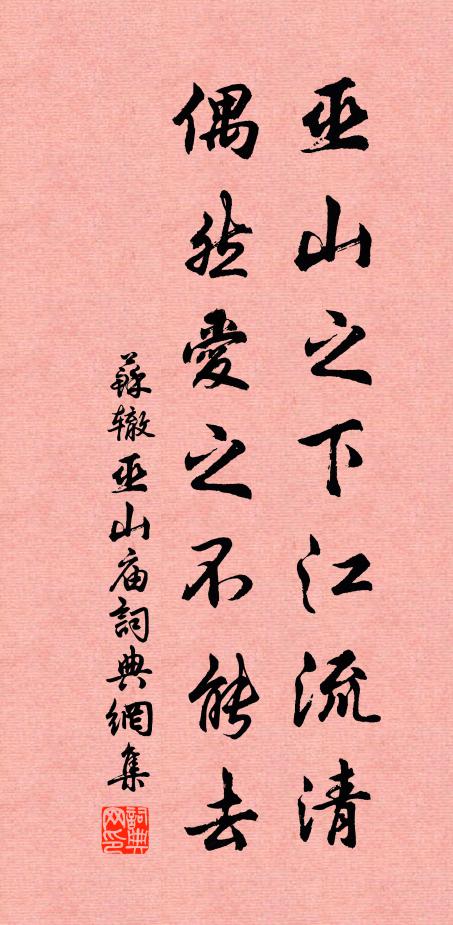 巫山之下江流清
偶然愛之不能去
蘇辙巫山庙詞典網集
詞典网印